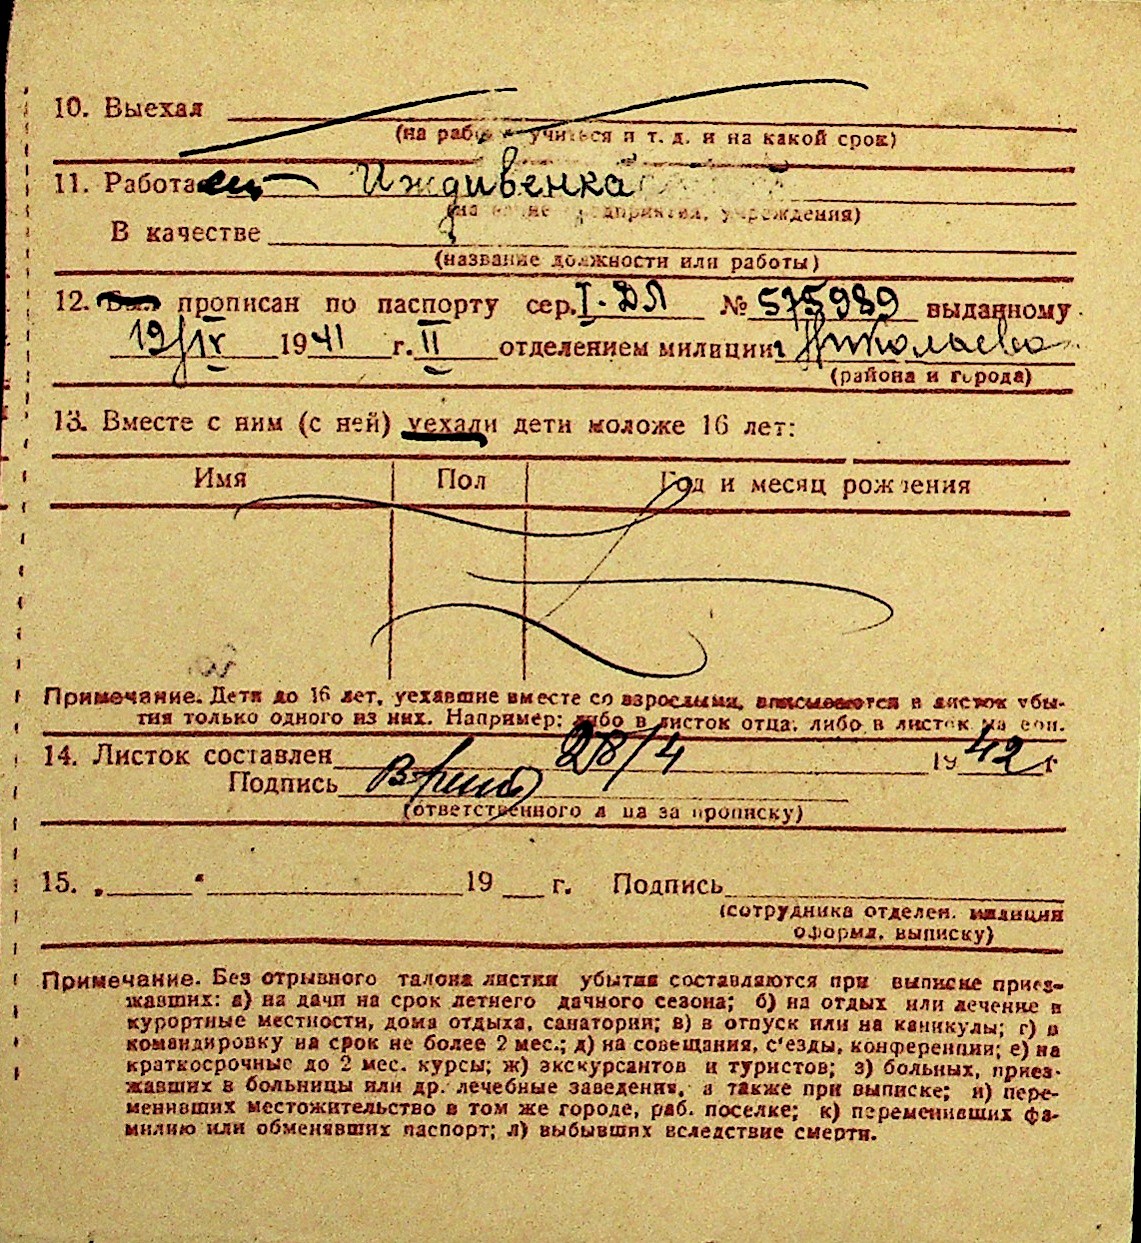 10. Выехал
(на работу, учиться и т. д. и на какой срок)
11. Работает Иждивенка
(название предприятия, учреждения)
В качестве
(название должности или работы)
12. прописан по паспорту сер. I-ДЛ № 575989 выданному
19/IV 1941 г. II отделением милиции г Николаева
(района и города)
13. Вместе с ним (с ней) уехали дети моложе 16 лет:
Имя Пол Год и месяц рождения
Примечание. Дети до 16 лет, уехавшие вместе со взрослыми, вписываются в листок убы-
тия только одного из них. Например: либо в листок отца, либо в листок матери.
14. Листок составлен 28/4 1942 г
Подпись
(ответственного лица за прописку)
15. „ “ 19 г. Подпись
(сотрудника отделен. милиции
оформл. выписку)
Примечание. Без отрывного талона листки убытия составляются при выписке приез-
жавших: а) на дачи на срок летнего дачного сезона; б) на отдых или лечение в
курортные местности, дома отдыха, санатории; в) в отпуск или на каникулы; г) в
командировку на срок не более 2 мес.; д) на совещания, с'езды, конференции; е) на
краткосрочные до 2 мес. курсы; ж) экскурсантов и туристов; з) больных, приез-
жавших в больницы или др. лечебные заведения, а также при выписке; и) пере-
менивших местожительство в том же городе, раб. поселке; к) переменивших фа-
милию или обменявших паспорт; л) выбывших вследствие смерти.